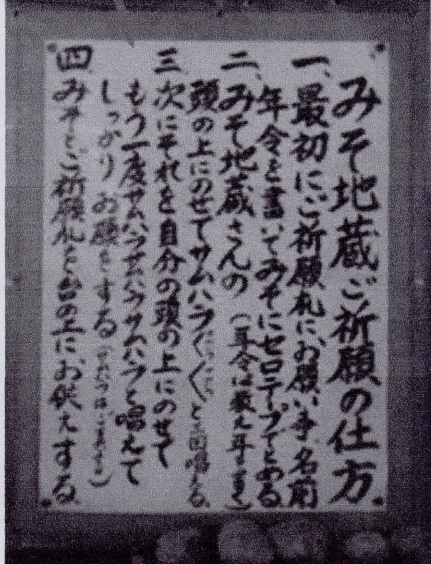 みそ地蔵ご祈願の仕方
一、最初にご祈願札に、お願い事、名前
年令を書いてみそにセロテープでとめる
二、みそ地蔵さんの(年令は数え年で書く)
頭の上にのせてサムハラ〱〱と三回唱える
三、次にそれを自分の頭の上にのせて
もう一度サムハラサムハラサムハラと唱えて
しっかりお願をする
四、みそとご祈願札を台の上にお供えする